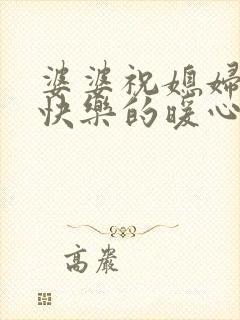 婆婆祝媳婦
快樂的暖心
高岩